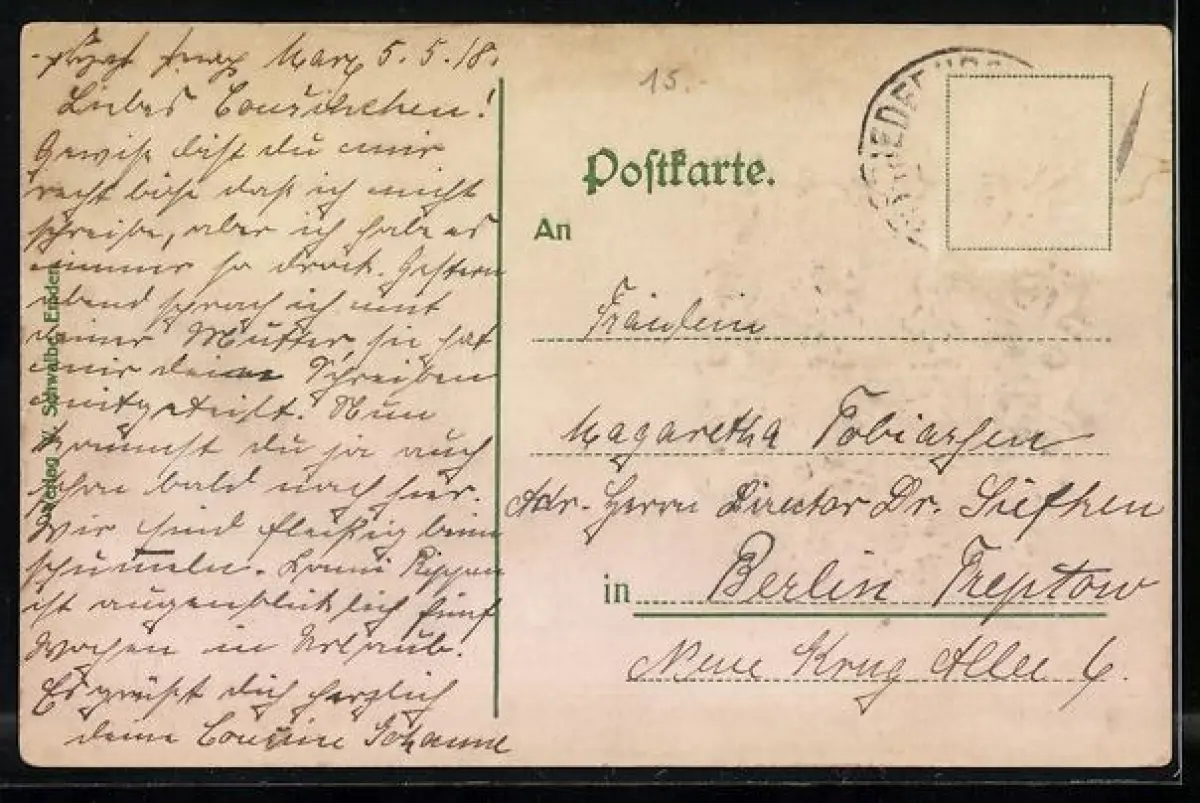 Marx 5.5.18.
Liebes Cousinchen!
Gewiß bist du mir
recht böse daß ich nicht
schreibe, aber ich habe es
immer so drock. Gestern
abend sprach ich mit
deiner Mutter, sie hat
mir dein Schreiben
mitgeteilt. Nun
kommst du ja auch
schon bald nach hier.
Wir sind fleißig beim
schummeln.
ist augenblicklich fünf
Wochen in Urlaub.
Es grüßt dich herzlich
deine Cousine Johanne
Verlag Schwalbe, Emden
15.-
FRIEDEBURG
Postkarte.
An
Fräulein
Magaretha Tobiaßen
Adr. Herrn Director Dr. Siefken
in Berlin Treptow
Neue Krug Allee 6.